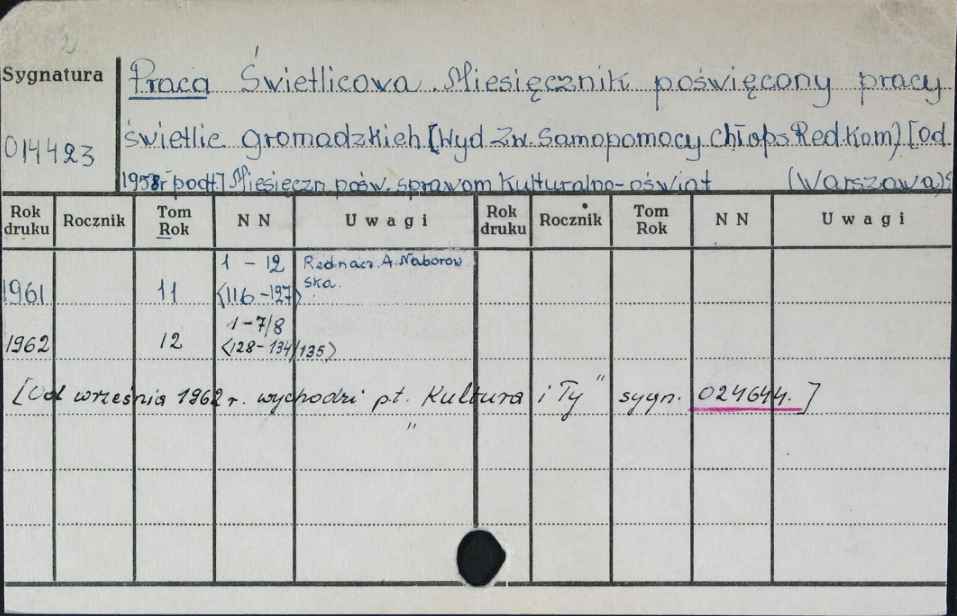 Sygnatura
014423
Praca Świetlicowa. Miesięcznik poświęcony pracy
świetlic gromadzkich [Wyd. Zw. Samopomocy Chłops Red. Kom) [Od
1958r podt] Miesięczn. pośw. sprawom kulturalno-oświat (Warszawa)
Rok druku Rocznik Tom Rok N N Uwagi Rok druku Rocznik Tom Rok N N Uwagi
1961 11 1 - 12 <116-127> Red nacz. A. Naborow
ska.
1962 12 1-7/8 <128-134/135>
[Od września 1962 r. wychodzi pt. „Kultura i Ty" sygn. 024644.]